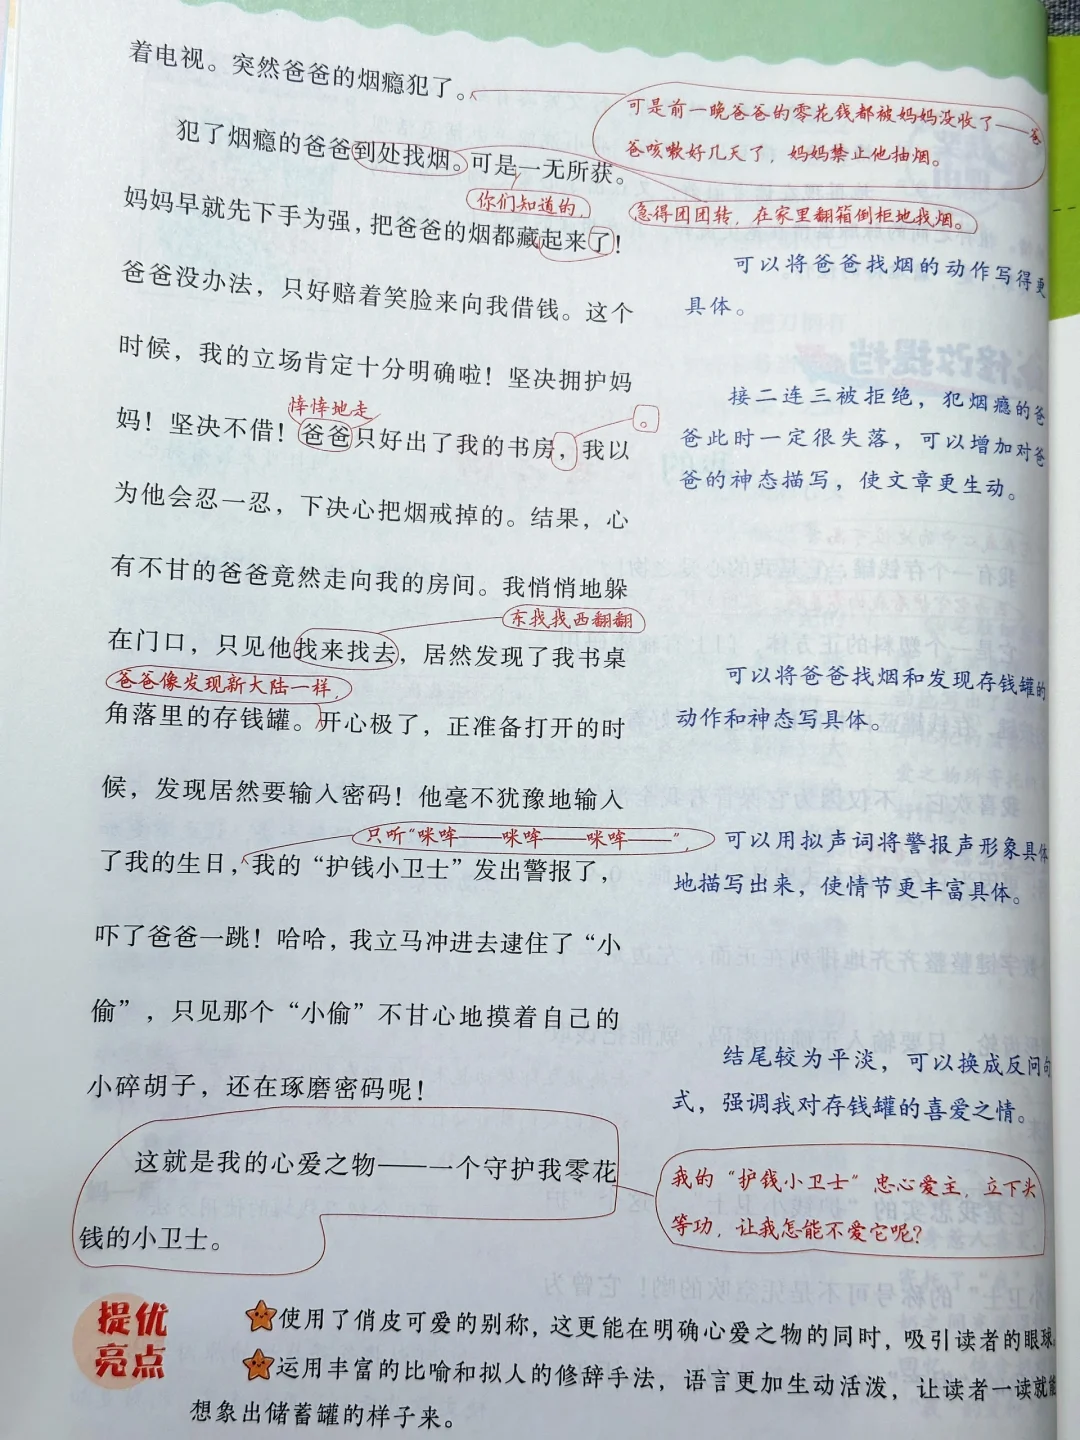 着电视。突然爸爸的烟瘾犯了。
可是前一晚爸爸的零花钱都被妈妈没收了——爸
爸咳嗽好几天了，妈妈禁止他抽烟。
犯了烟瘾的爸爸到处找烟。可是一无所获。
你们知道的，
急得团团转，在家里翻箱倒柜地找烟。
妈妈早就先下手为强，把爸爸的烟都藏起来了！
可以将爸爸找烟的动作写得更
具体。
爸爸没办法，只好赔着笑脸来向我借钱。这个
时候，我的立场肯定十分明确啦！坚决拥护妈
修改提档
悻悻地走
。
妈！坚决不借！爸爸只好出了我的书房，我以
接二连三被拒绝，犯烟瘾的爸
爸此时一定很失落，可以增加对爸
爸的神态描写，使文章更生动。
为他会忍一忍，下决心把烟戒掉的。结果，心
有不甘的爸爸竟然走向我的房间。我悄悄地躲
东找找西翻翻
在门口，只见他找来找去，居然发现了我书桌
爸爸像发现新大陆一样，
可以将爸爸找烟和发现存钱罐的
动作和神态写具体。
角落里的存钱罐。开心极了，正准备打开的时
候，发现居然要输入密码！他毫不犹豫地输入
只听“咪哞——咪哞——咪哞——”，
可以用拟声词将警报声形象具体
地描写出来，使情节更丰富具体。
了我的生日，我的“护钱小卫士”发出警报了，
吓了爸爸一跳！哈哈，我立马冲进去逮住了“小
偷”，只见那个“小偷”不甘心地摸着自己的
小碎胡子，还在琢磨密码呢！
结尾较为平淡，可以换成反问句
式，强调我对存钱罐的喜爱之情。
这就是我的心爱之物——一个守护我零花
钱的小卫士。
我的“护钱小卫士”忠心爱主，立下头
等功，让我怎能不爱它呢？
提优
亮点
使用了俏皮可爱的别称，这更能在明确心爱之物的同时，吸引读者的眼球。
运用丰富的比喻和拟人的修辞手法，语言更加生动活泼，让读者一读就能
想象出储蓄罐的样子来。